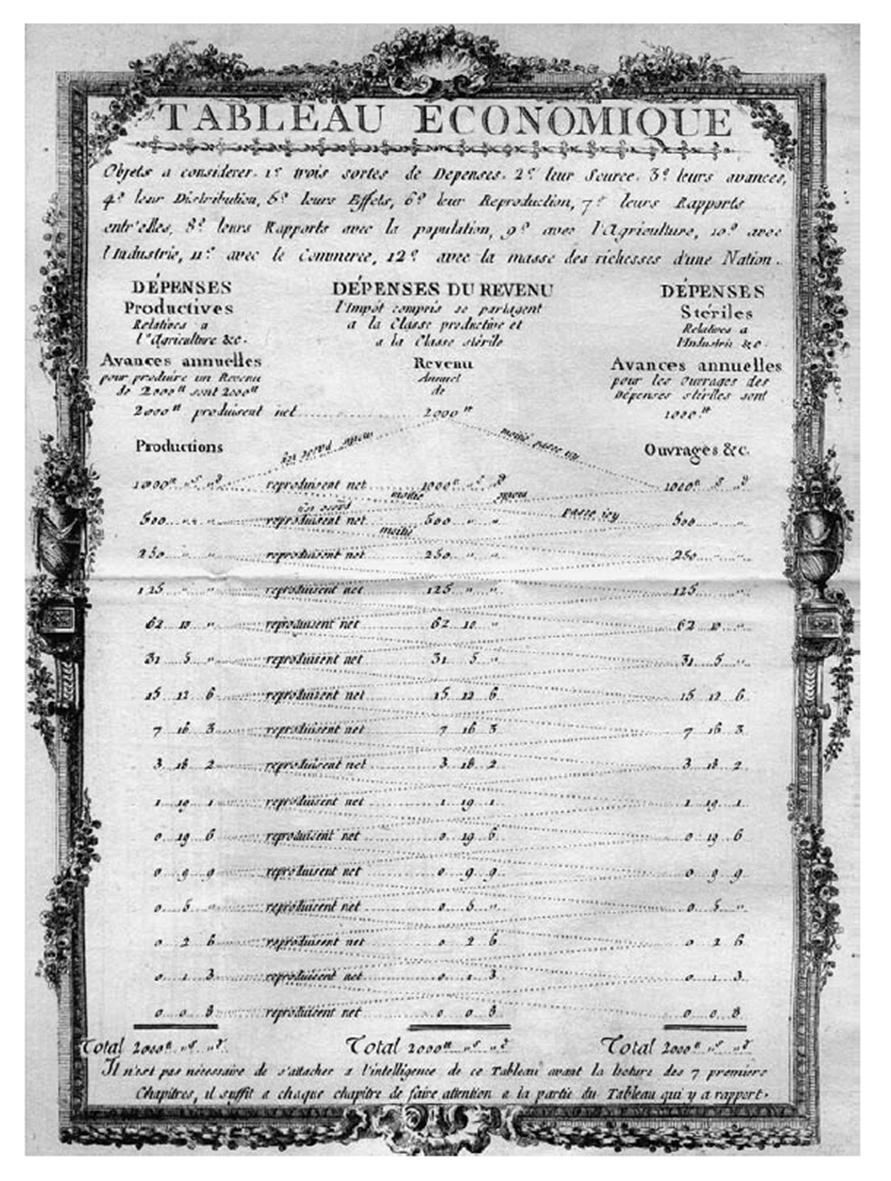 TABLEAU ECONOMIQUE
Objets a considerer. 1º trois sortes de Depenses. 2º leur Source. 3º leurs avances,
4º leur Distribution, 5º leurs Effets, 6º leur Reproduction, 7º leurs Rapports
entr'elles, 8º leurs Rapports avec la population, 9º avec l'Agriculture, 10º avec
l'Industrie, 11º avec le Commerce, 12º avec la masse des richesses d'une Nation.
DÉPENSES
Productives
Relatives a
l'Agriculture &c.
DÉPENSES DU REVENU
l'Impôt compris se partagent
a la Classe productive et
a la Classe stérile
DÉPENSES
Stériles
Relatives a
l'Industrie &c.
Avances annuelles
pour produire un Revenu
de 2000tt sont 2000tt
2000tt produisent net
Revenu
Annuel
de
2000tt
Avances annuelles
pour les Ouvrages des
Dépenses stériles sont
1000tt
Productions
moitié passe icy
Ouvrages &c.
1000tt " s " d reproduisent net 1000tt " s " d 1000tt " s " d
moitié
passe icy
moitié
500 " " reproduisent net 500 " " 500 " "
250 " " reproduisent net 250 " " 250 " "
125 " " reproduisent net 125 " " 125 " "
62 10 " reproduisent net 62 10 " 62 10 "
31 5 " reproduisent net 31 5 " 31 5 "
15 12 6 reproduisent net 15 12 6 15 12 6
7 16 3 reproduisent net 7 16 3 7 16 3
3 18 2 reproduisent net 3 18 2 3 18 2
1 19 1 reproduisent net 1 19 1 1 19 1
0 19 6 reproduisent net 0 19 6 0 19 6
0 9 9 reproduisent net 0 9 9 0 9 9
0 5 " reproduisent net 0 5 " 0 5 "
0 2 6 reproduisent net 0 2 6 0 2 6
0 1 3 reproduisent net 0 1 3 0 1 3
0 0 8 reproduisent net 0 0 8 0 0 8
Total 2000tt " s " d Total 2000tt " s " d Total 2000tt " s " d
Il n'est pas nécessaire de s'attacher a l'intelligence de ce Tableau avant la lecture des 7 premiers
Chapitres, il suffit a chaque chapitre de faire attention a la partie du Tableau qui y a rapport.